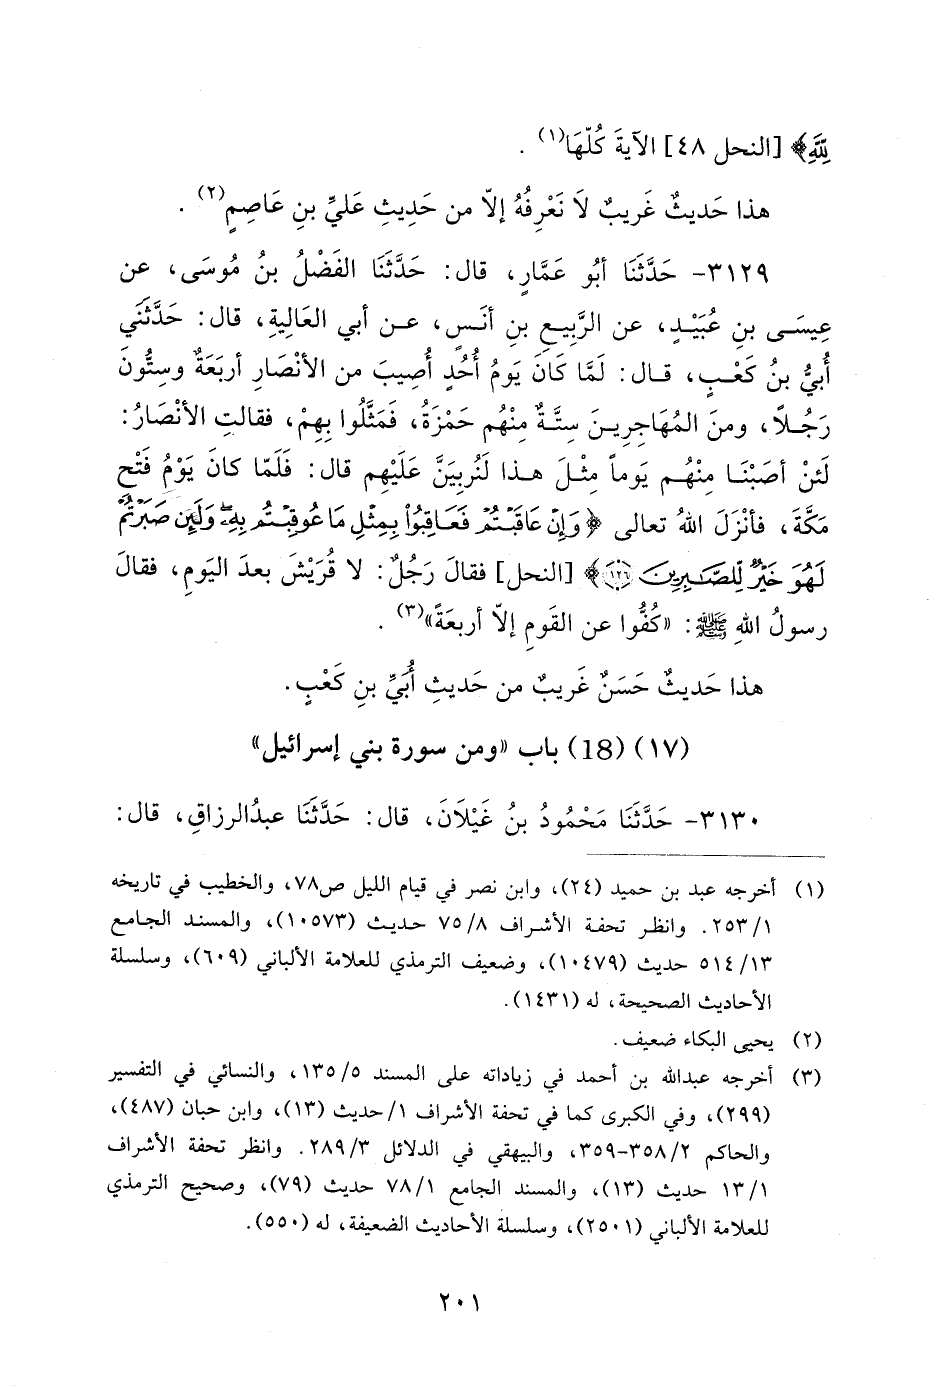 لِلَّهِ﴾ [النحل ٤٨] الآيةَ كُلّهَا(١) .
هذا حَديثٌ غَريبٌ لَا نَعْرِفُهُ إلاّ من حَدِيثِ عَليِّ بنِ عَاصِمٍ(٢) .
٣١٢٩- حَدَّثَنَا أبُو عَمَّارٍ، قال: حَدَّثَنَا الفَضْلُ بنُ مُوسَى، عن
عِيسَى بنِ عُبَيْدٍ، عن الرَّبيعِ بنِ أنَسٍ، عن أبي العَالِيةِ، قال: حَدَّثَنَي
أُبيُّ بنُ كَعْبٍ، قال: لَمَّا كَانَ يَومُ أُحُدٍ أُصِيبَ من الأنْصَارِ أربَعَةٌ وستُّونَ
رَجُلاً، ومنَ المُهَاجِرِينَ ستَّةٌ منْهُم حَمْزَةُ، فَمَثَّلُوا بِهِمْ، فقالتِ الأنْصَارُ:
لَئنْ أصَبْنَا مِنْهُم يَوماً مثْلَ هذا لَنُربِيَنَّ عَلَيْهِم قال: فَلَمّا كانَ يَوْمُ فَتْحِ
مَكَّةَ، فأنْزَلَ اللهُ تعالى ﴿وَإِنْ عَاقَبْتُمْ فَعَاقِبُوا بِمِثْلِ مَا عُوقِبْتُم بِهِۦ وَلَئِن صَبَرْتُمْ
لَهُوَ خَيْرٌ لِّلصَّٰبِرِينَ ﴿١٢٦﴾﴾ [النحل] فقالَ رَجُلٌ: لا قُرَيْشَ بعدَ اليَومِ، فقالَ
رسولُ اللهِ ﷺ: «كُفُّوا عن القَومِ إلاّ أربعَةً»(٣) .
هذا حَديثٌ حَسَنٌ غَريبٌ من حَديثِ أُبَيِّ بنِ كَعْبٍ.
(١٧) (18) باب «ومن سورة بني إسرائيل»
٣١٣٠- حَدَّثَنَا مَحْمُودُ بنُ غَيْلَانَ، قال: حَدَّثَنَا عبدُالرزاقِ، قال:
(١) أخرجه عبد بن حميد (٢٤)، وابن نصر في قيام الليل ص٧٨، والخطيب في تاريخه
٢٥٣/١. وانظر تحفة الأشراف ٧٥/٨ حديث (١٠٥٧٣)، والمسند الجامع
٥١٤/١٣ حديث (١٠٤٧٩)، وضعيف الترمذي للعلامة الألباني (٦٠٩)، وسلسلة
الأحاديث الصحيحة، له (١٤٣١).
(٢) يحيى البكاء ضعيف.
(٣) أخرجه عبدالله بن أحمد في زياداته على المسند ١٣٥/٥، والنسائي في التفسير
(٢٩٩)، وفي الكبرى كما في تحفة الأشراف ١/حديث (١٣)، وابن حبان (٤٨٧)،
والحاكم ٣٥٨/٢-٣٥٩، والبيهقي في الدلائل ٢٨٩/٣. وانظر تحفة الأشراف
١٣/١ حديث (١٣)، والمسند الجامع ٧٨/١ حديث (٧٩)، وصحيح الترمذي
للعلامة الألباني (٢٥٠١)، وسلسلة الأحاديث الضعيفة، له (٥٥٠).
٢٠١